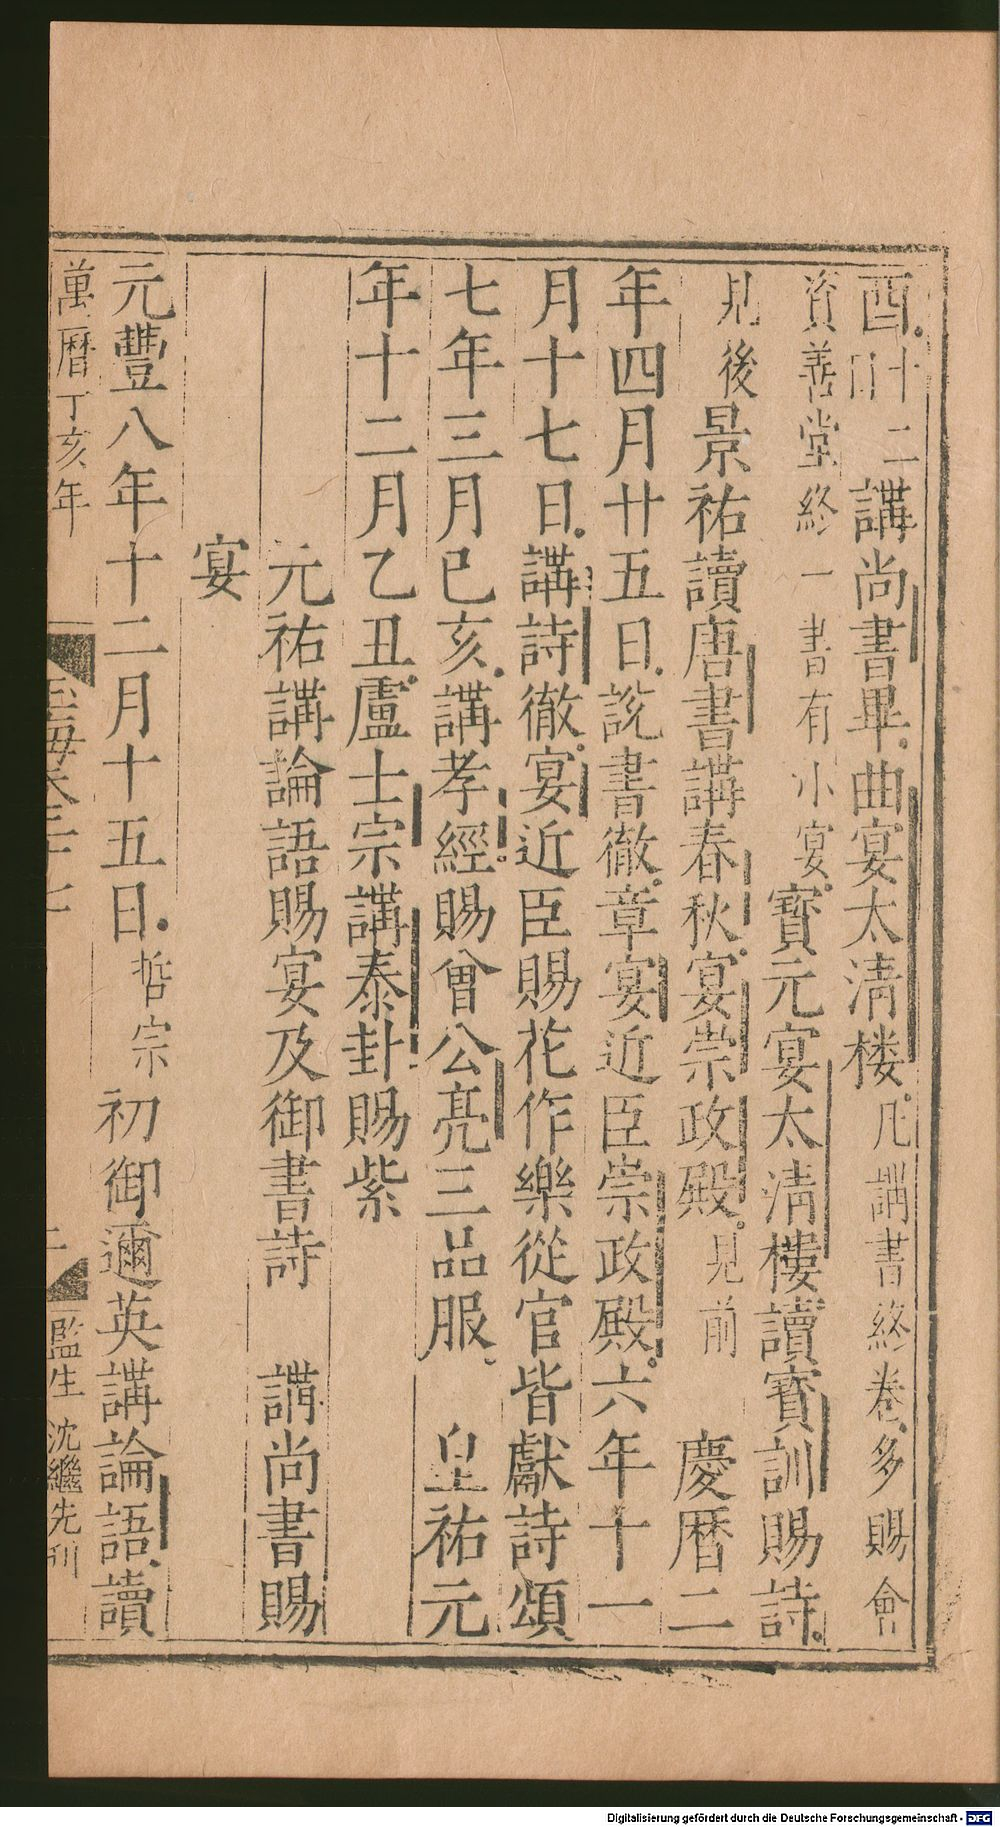 酉十二日講尚書畢曲宴太淸樓凡講書終卷多賜會
資善堂終一書有小宴寶元宴太淸樓讀寶訓賜詩
見後景祐讀唐書講春秋宴崇政殿見前 慶曆二
年四月廿五日說書徹章宴近臣崇政殿六年十一
月十七日講詩徹宴近臣賜花作樂從官皆獻詩頌
七年三月已亥講孝經賜曾公亮三品服 皇祐元
年十二月乙丑盧士宗講泰卦賜紫
元祐講論語賜宴及御書詩 講尚書賜
宴
元豐八年十二月十五日哲宗初御邇英講論語讀
萬曆丁亥年
玉海卷二十七
監生沈繼先刊
Digitalisierung gefördert durch die Deutsche Forschungsgemeinschaft - DFG